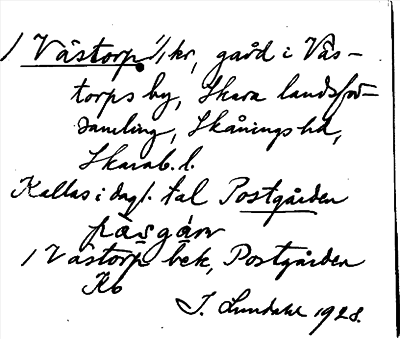 1 Västorp 1/1 kr, gård i Väs-
torps by, Skara landsför-
samling, Skånings hd,
Skarab. l.
Kallas i dagl. tal Postgården
pàsgáɳ
1 Västorp bek, Postgården
Ko
I. Lundahl 1928.